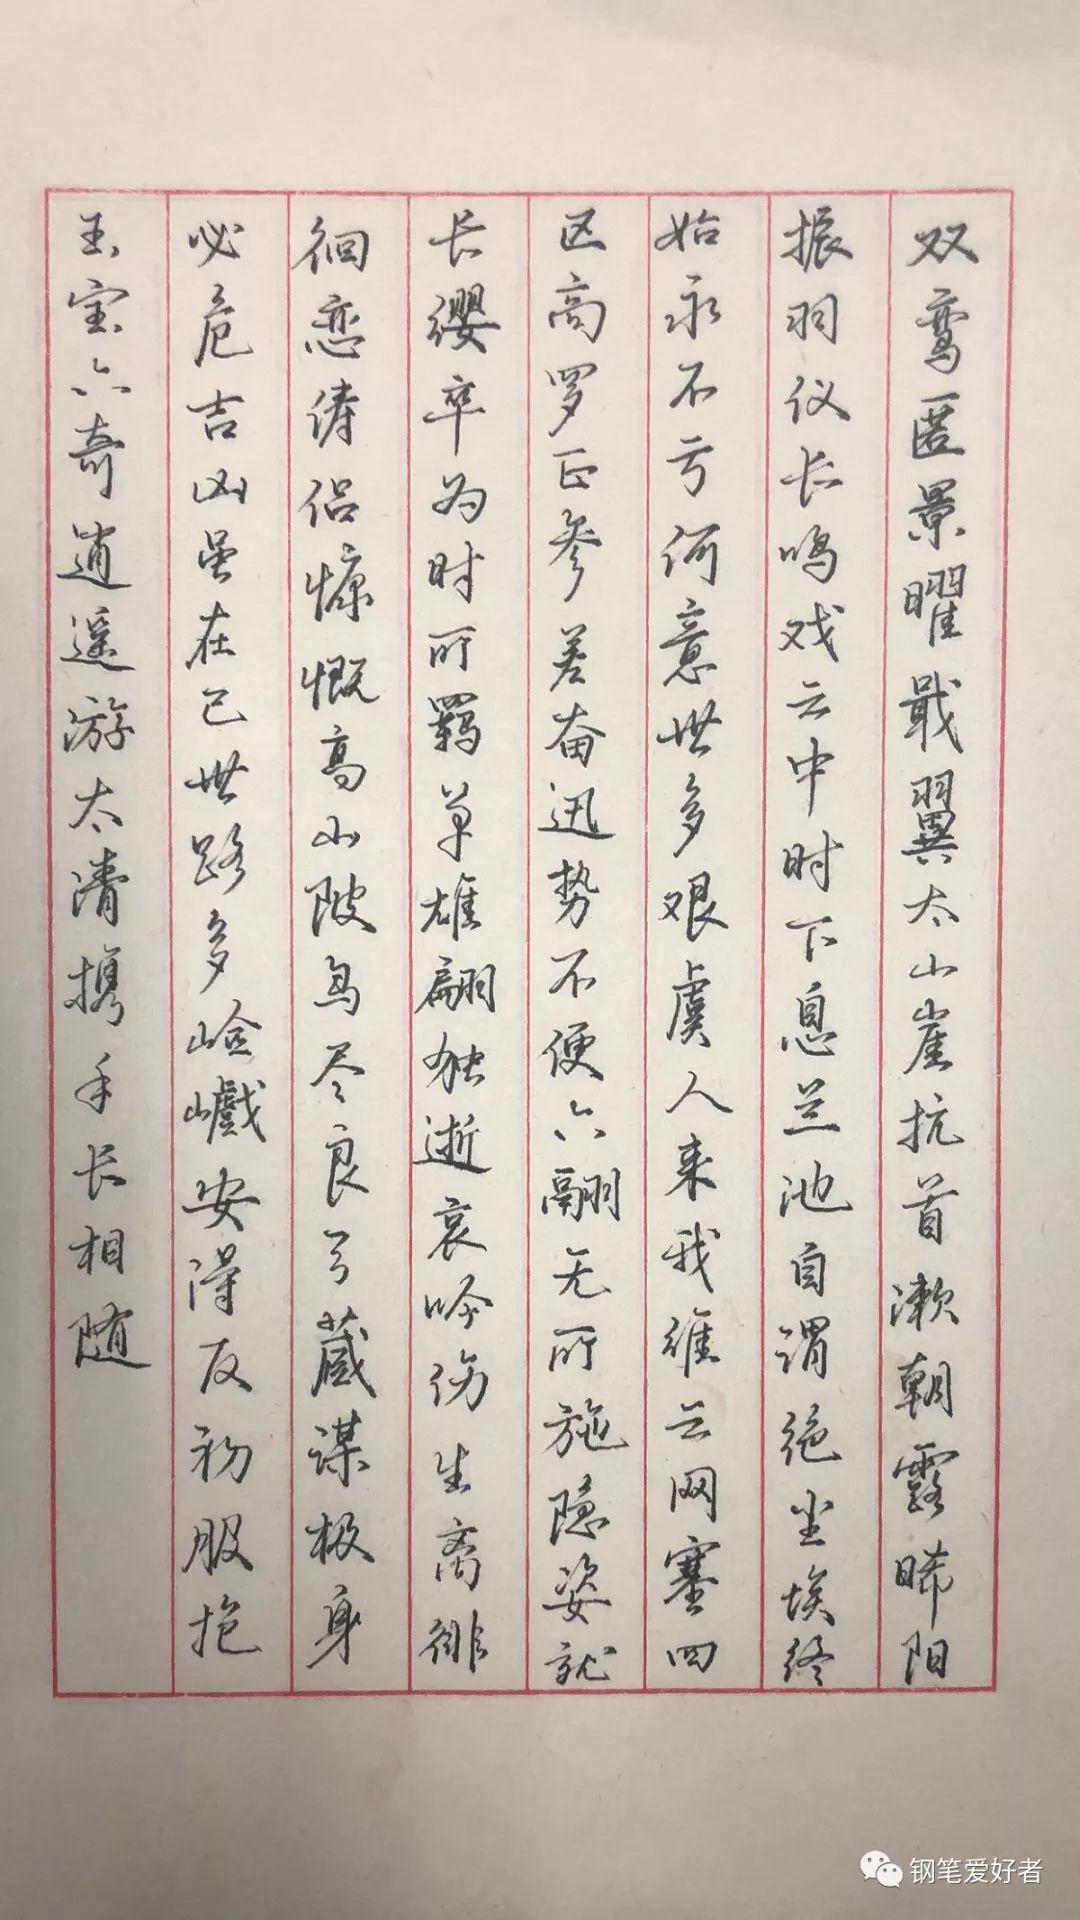 双鸾匿景曜戢翼太山崖抗首漱朝露晞阳
振羽仪长鸣戏云中时下息兰池自谓绝尘埃终
始永不亏何意世多艰虞人来我维云网塞四
区高罗正参差奋迅势不便六翮无所施隐姿就
长缨卒为时所羁单雄翩独逝哀吟伤生离徘
徊恋俦侣慷慨高山陂鸟尽良弓藏谋极身
必危吉凶虽在己世路多崄巇安得反初服抱
玉宝六奇逍遥游太清携手长相随
钢笔爱好者